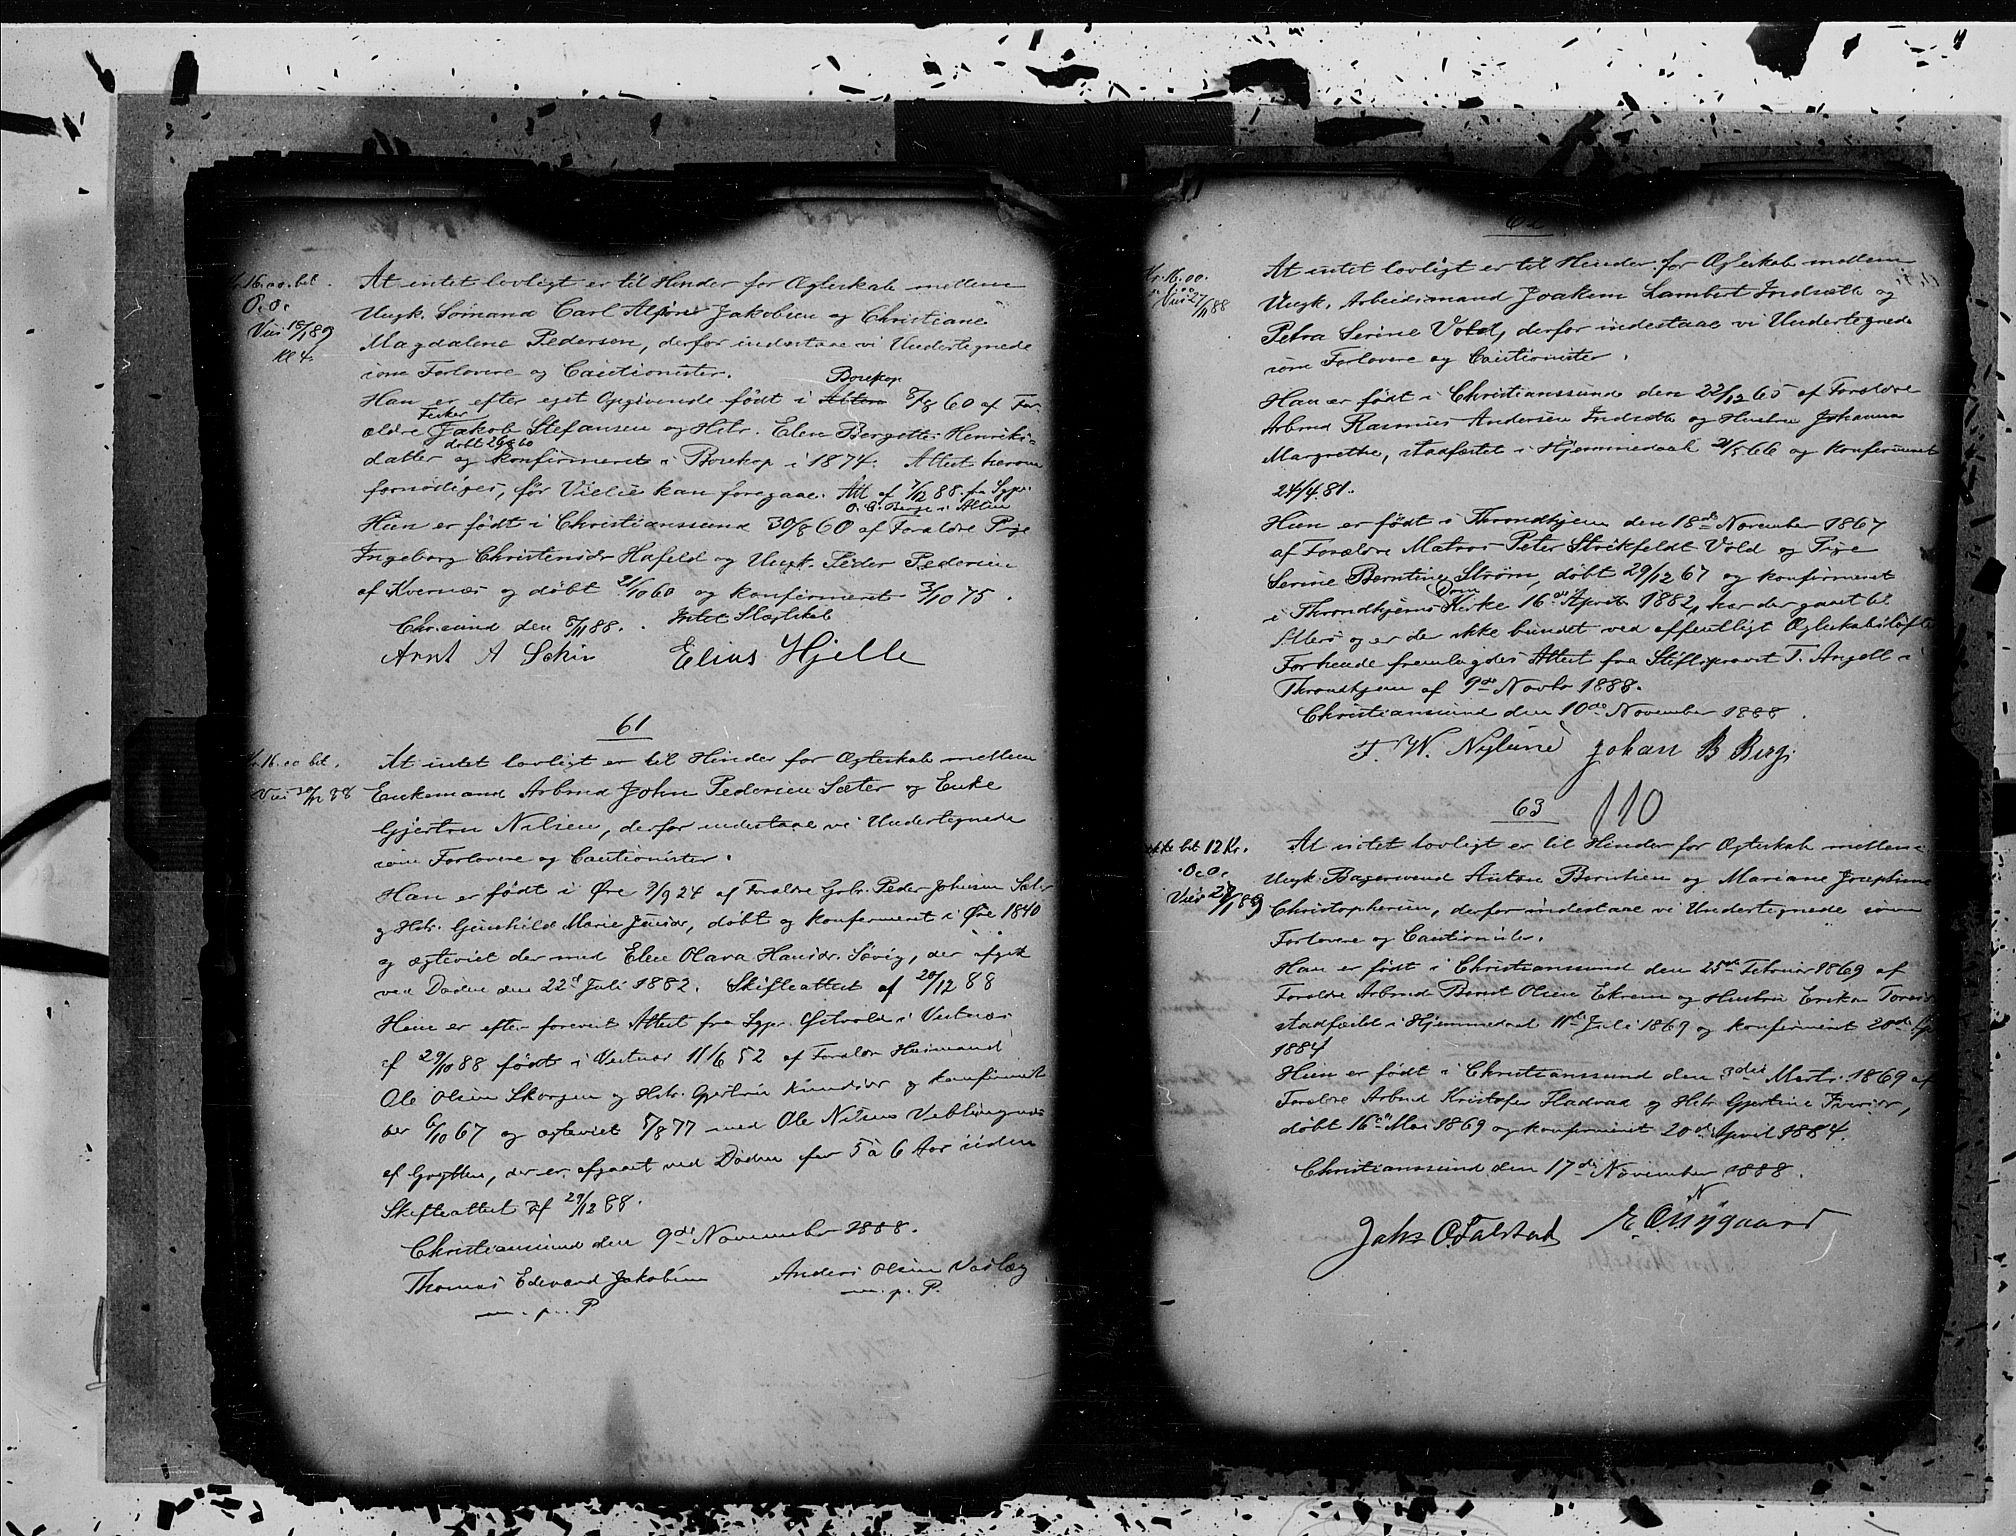 Kr. 16.00 bet.
O. O.
Viet 15/1 89
kl 4
At intet lovligt er til Hinder for Ægteskab mellem
Ungk. Sømand Carl Jakobsen og Christiane
Magdalene Pedersen, derfor indestaae vi Undertegnede
som Forlovere og Cautionister.
Bosekop
Han er efter eget Opgivende født i Alten 8/8 60 af For-
Fisker
ældre Jakob Stefansen og Hstr. Elen Bergette Henriks-
døbt 26/8 60
datter og konfirmeret i Bosekop i 1874. Attest herom
fornødiges, før Vielse kan foregaae. Att. af 7/12 88 fra Sgpr.
O. C. Berge i Alten
Hun er født i Christianssund 30/8 60 af Forældre Pige
Ingeborg Christensdr Hafeld og Ungk. Peder Pedersen
af Kvernæs og døbt 21/10 60 og konfirmeret 3/10 75.
Chr.sund den 8/11 88. Intet Slægtskab
Arnt A Elias Hjelle
61
Kr. 16.00 bet.
Viet 30/12 88
At intet lovligt er til Hinder for Ægteskab mellem
Enkemand Arbmd John Pedersen Sæter og Enke
Gjertru Nilsen, derfor indestaae vi Undertegnede
som Forlovere og Cautionister.
Han er født i Øre 9/9 24 af Forældre Grbr. Peder Johnsen Sæter
og Hstr. Gunhild Marie Jensdr, døbt og konfirmeret i Øre 1840
og ægteviet der med Elen Olava Hansdr. Søvig, der afgik
ved Døden den 22de Juli 1882. Skifteattest af 20/12 88
Hun er efter forevist Attest fra Sgpr. Østvold i Vestnæs
af 29/10 88 født i Vestnæs 11/6 52 af Forældre Husmand
Ole Olsen Skorgen og Hstr. Gjertru Knudsdr og konfirmeret
der 6/10 67 og ægteviet 5/8 77 med Ole Nilsen Veblungsnæs
af Grytten, der er afgaaet ved Døden for 5 à 6 Aar siden
Skifteattest af 29/12 88.
Christianssund den 9de November 1888.
Thomas Edevard Jakobsen Anders Olsen
m. p. P. m. p. P.
62
Kr. 16.00.
Viet 27/11 88
At intet lovligt er til Hinder for Ægteskab mellem
Ungk. Arbeidsmand Joakim Lambert Indsæth og
Petra Serine Vold, derfor indestaae vi Undertegnede
som Forlovere og Cautionister.
Han er født i Christianssund den 22/12 65 af Forældre
Arbmd Rasmus Andersen Indsæth og Hustru Johanna
Margrethe, stadfæstet i Hjemmedaab 21/5 66 og konfirmeret
24/4 81.
Hun er født i Throndhjem den 18de November 1867
af Forældre Matros Peter Strikfeldt Vold og Pige
Serine Berntine Strøm, døbt 29/12 67 og konfirmeret
Dom
i Throndhjems Kirke 16de April 1882, har der gaaet til
Alters og er der ikke bundet ved offentligt Ægteskabsløfte
Forhende fremlagdes Attest fra Stiftsprovst T. Angell i
Throndhjem af 9de Novbr 1888.
Christianssund den 10de November 1888.
T. W. Nylund Johan B Berg
63
110
ikke bet 12 Kr.
O. O.
Viet 2/1 89
At intet lovligt er til Hinder for Ægteskab mellem
Ungk. Bagersvend Anton Berntsen og Mariane Josephine
Christophersen, derfor indestaae vi Undertegnede som
Forlovere og Cautionister.
Han er født i Christianssund den 25de Februar 1869 af
Forældre Arbmd Bernt Olsen Ekrem og Hustru Erika
stadfæstet i Hjemmedaab 11de Juli 1869 og konfirmeret 20de
1884
Hun er født i Christianssund den 3die Marts 1869 af
Forældre Arbmd Kristofer Fladvad og Hstr. Gjertine Iversdr,
døbt 16de Mai 1869 og konfirmeret 20de April 1884.
Christianssund den 17de November 1888.
Jahs O. Falstad